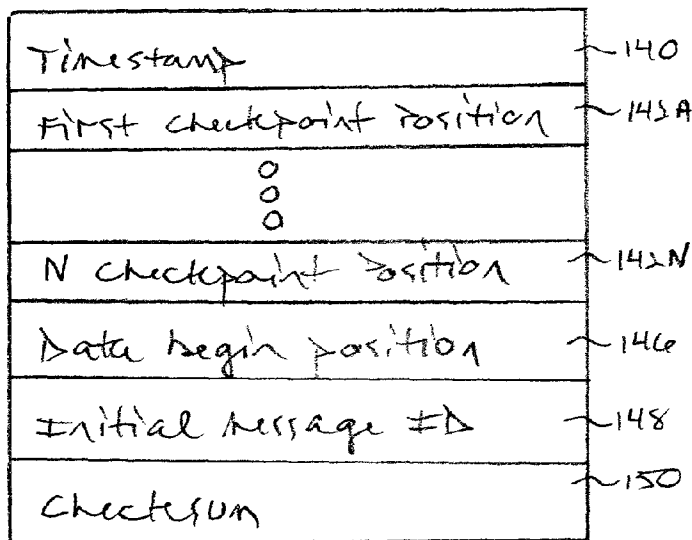 Timestamp 140
First checkpoint position 142A
N checkpoint position 142N
Data begin position 146
Initial message ID 148
Checksum 150